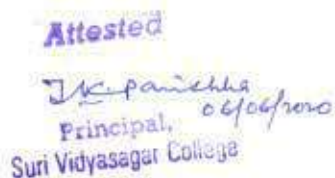 Attested
T.K. Parichha
06/06/2020
Principal,
Suri Vidyasagar College